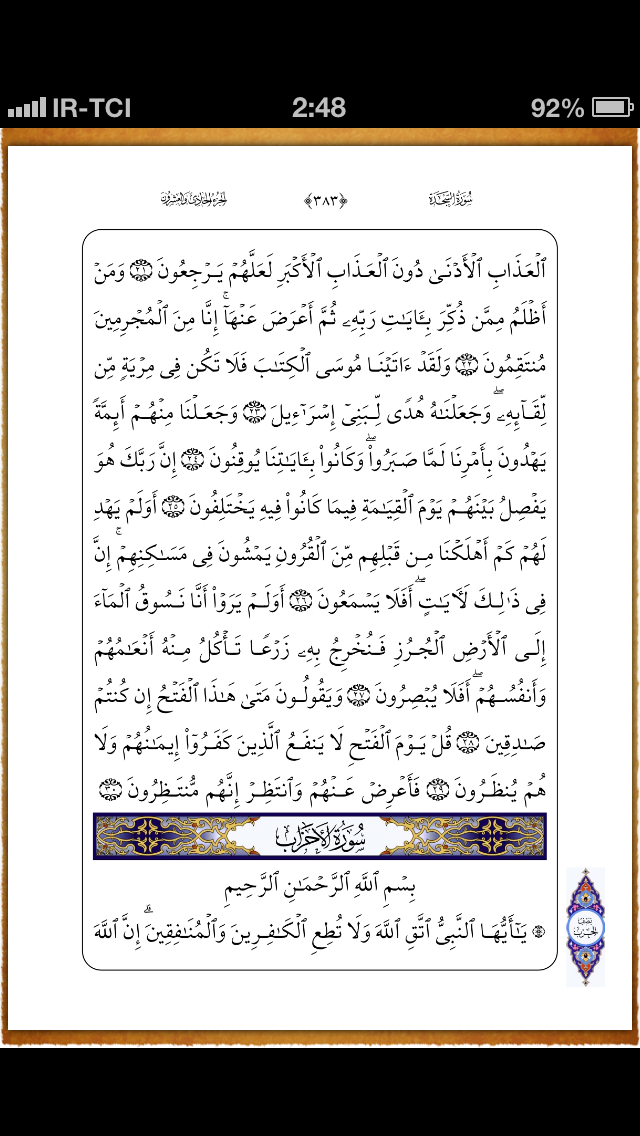 IR-TCI 2:48 92%
سُورَةُ السَّجۡدَةِ ﴿٣٨٣﴾ الجزء الحادي والعشرون
ٱلۡعَذَابِ ٱلۡأَدۡنَىٰ دُونَ ٱلۡعَذَابِ ٱلۡأَكۡبَرِ لَعَلَّهُمۡ يَرۡجِعُونَ ٢١ وَمَنۡ
أَظۡلَمُ مِمَّن ذُكِّرَ بِـَٔايَٰتِ رَبِّهِۦ ثُمَّ أَعۡرَضَ عَنۡهَآۚ إِنَّا مِنَ ٱلۡمُجۡرِمِينَ
مُنتَقِمُونَ ٢٢ وَلَقَدۡ ءَاتَيۡنَا مُوسَى ٱلۡكِتَٰبَ فَلَا تَكُن فِي مِرۡيَةٖ مِّن
لِّقَآئِهِۦۖ وَجَعَلۡنَٰهُ هُدٗى لِّبَنِيٓ إِسۡرَٰٓءِيلَ ٢٣ وَجَعَلۡنَا مِنۡهُمۡ أَئِمَّةٗ
يَهۡدُونَ بِأَمۡرِنَا لَمَّا صَبَرُواْۖ وَكَانُواْ بِـَٔايَٰتِنَا يُوقِنُونَ ٢٤ إِنَّ رَبَّكَ هُوَ
يَفۡصِلُ بَيۡنَهُمۡ يَوۡمَ ٱلۡقِيَٰمَةِ فِيمَا كَانُواْ فِيهِ يَخۡتَلِفُونَ ٢٥ أَوَلَمۡ يَهۡدِ
لَهُمۡ كَمۡ أَهۡلَكۡنَا مِن قَبۡلِهِم مِّنَ ٱلۡقُرُونِ يَمۡشُونَ فِي مَسَٰكِنِهِمۡۚ إِنَّ
فِي ذَٰلِكَ لَأٓيَٰتٍۖ أَفَلَا يَسۡمَعُونَ ٢٦ أَوَلَمۡ يَرَوۡاْ أَنَّا نَسُوقُ ٱلۡمَآءَ
إِلَى ٱلۡأَرۡضِ ٱلۡجُرُزِ فَنُخۡرِجُ بِهِۦ زَرۡعٗا تَأۡكُلُ مِنۡهُ أَنۡعَٰمُهُمۡ
وَأَنفُسُهُمۡۖ أَفَلَا يُبۡصِرُونَ ٢٧ وَيَقُولُونَ مَتَىٰ هَٰذَا ٱلۡفَتۡحُ إِن كُنتُمۡ
صَٰدِقِينَ ٢٨ قُلۡ يَوۡمَ ٱلۡفَتۡحِ لَا يَنفَعُ ٱلَّذِينَ كَفَرُوٓاْ إِيمَٰنُهُمۡ وَلَا
هُمۡ يُنظَرُونَ ٢٩ فَأَعۡرِضۡ عَنۡهُمۡ وَٱنتَظِرۡ إِنَّهُم مُّنتَظِرُونَ ٣٠
سُورَةُ الأَحۡزَابِ
بِسۡمِ ٱللَّهِ ٱلرَّحۡمَٰنِ ٱلرَّحِيمِ
۞ يَٰٓأَيُّهَا ٱلنَّبِيُّ ٱتَّقِ ٱللَّهَ وَلَا تُطِعِ ٱلۡكَٰفِرِينَ وَٱلۡمُنَٰفِقِينَۚ إِنَّ ٱللَّهَ
نصف
الحزب